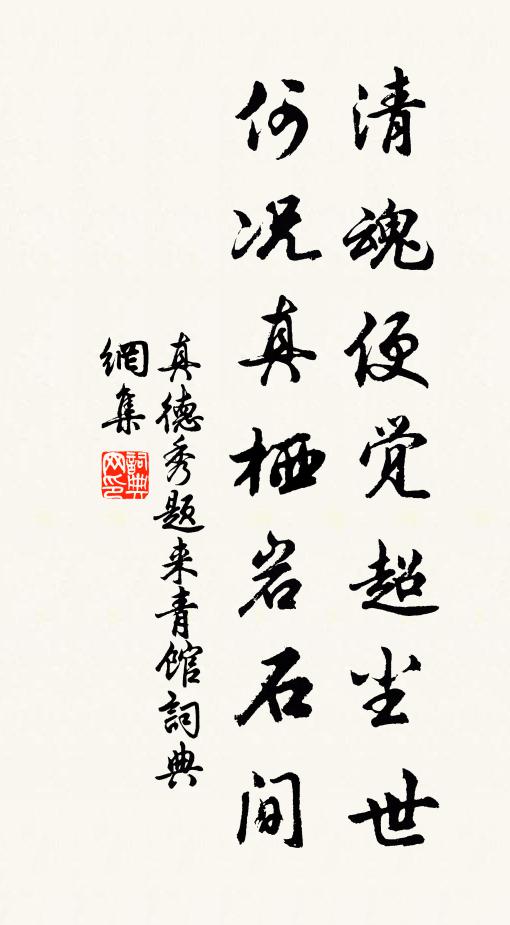 清魂便觉超尘世
何况真栖岩石间
真德秀题来青馆詞典
網集
詞典网印